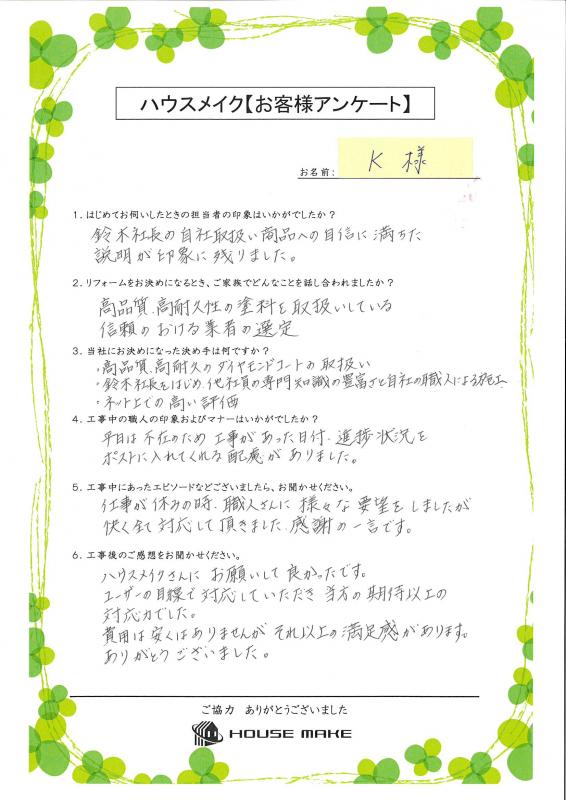 ハウスメイク【お客様アンケート】
お名前: K 様
1. はじめてお伺いしたときの担当者の印象はいかがでしたか？
鈴木社長の自社取扱い商品への自信に満ちた
説明が印象に残りました。
2. リフォームをお決めになるとき、ご家族でどんなことを話し合われましたか？
高品質、高耐久性の塗料を取扱いしている
信頼のおける業者の選定
3. 当社にお決めになった決め手は何ですか？
・高品質、高耐久のダイヤモンドコートの取扱い
・鈴木社長をはじめ、他社員の専門知識の豊富さと自社の職人による施工
・ネット上での高い評価
4. 工事中の職人の印象およびマナーはいかがでしたか？
平日は不在のため工事があった日付、進捗状況を
ポストに入れてくれる配慮がありました。
5. 工事中にあったエピソードなどございましたら、お聞かせください。
仕事が休みの時、職人さんに様々な要望をしましたが
快く全て対応して頂きました。感謝の一言です。
6. 工事後のご感想をお聞かせください。
ハウスメイクさんにお願いして良かったです。
ユーザーの目線で対応していただき当方の期待以上の
対応力でした。
費用は安くはありませんがそれ以上の満足感があります。
ありがとうございました。
ご協力 ありがとうございました
HOUSE MAKE